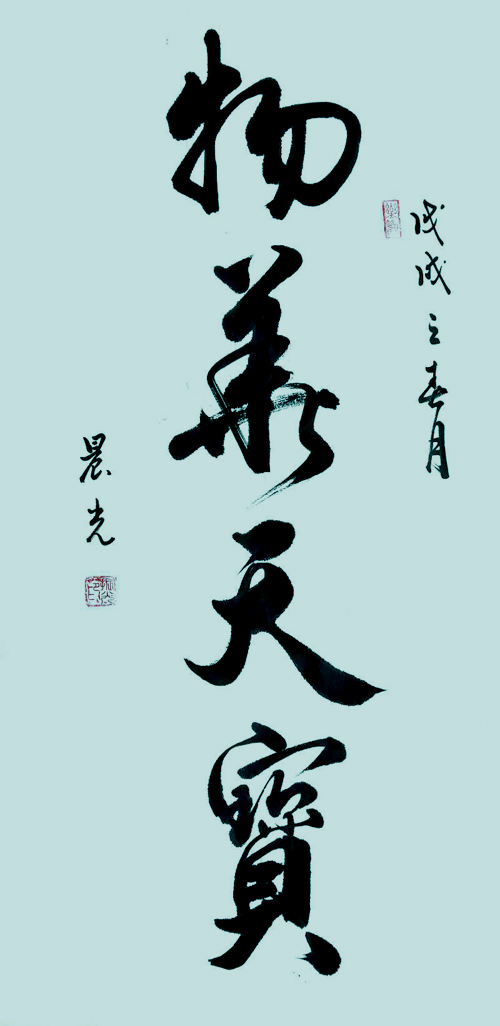 戊戌之春月
物華天寶
晨光